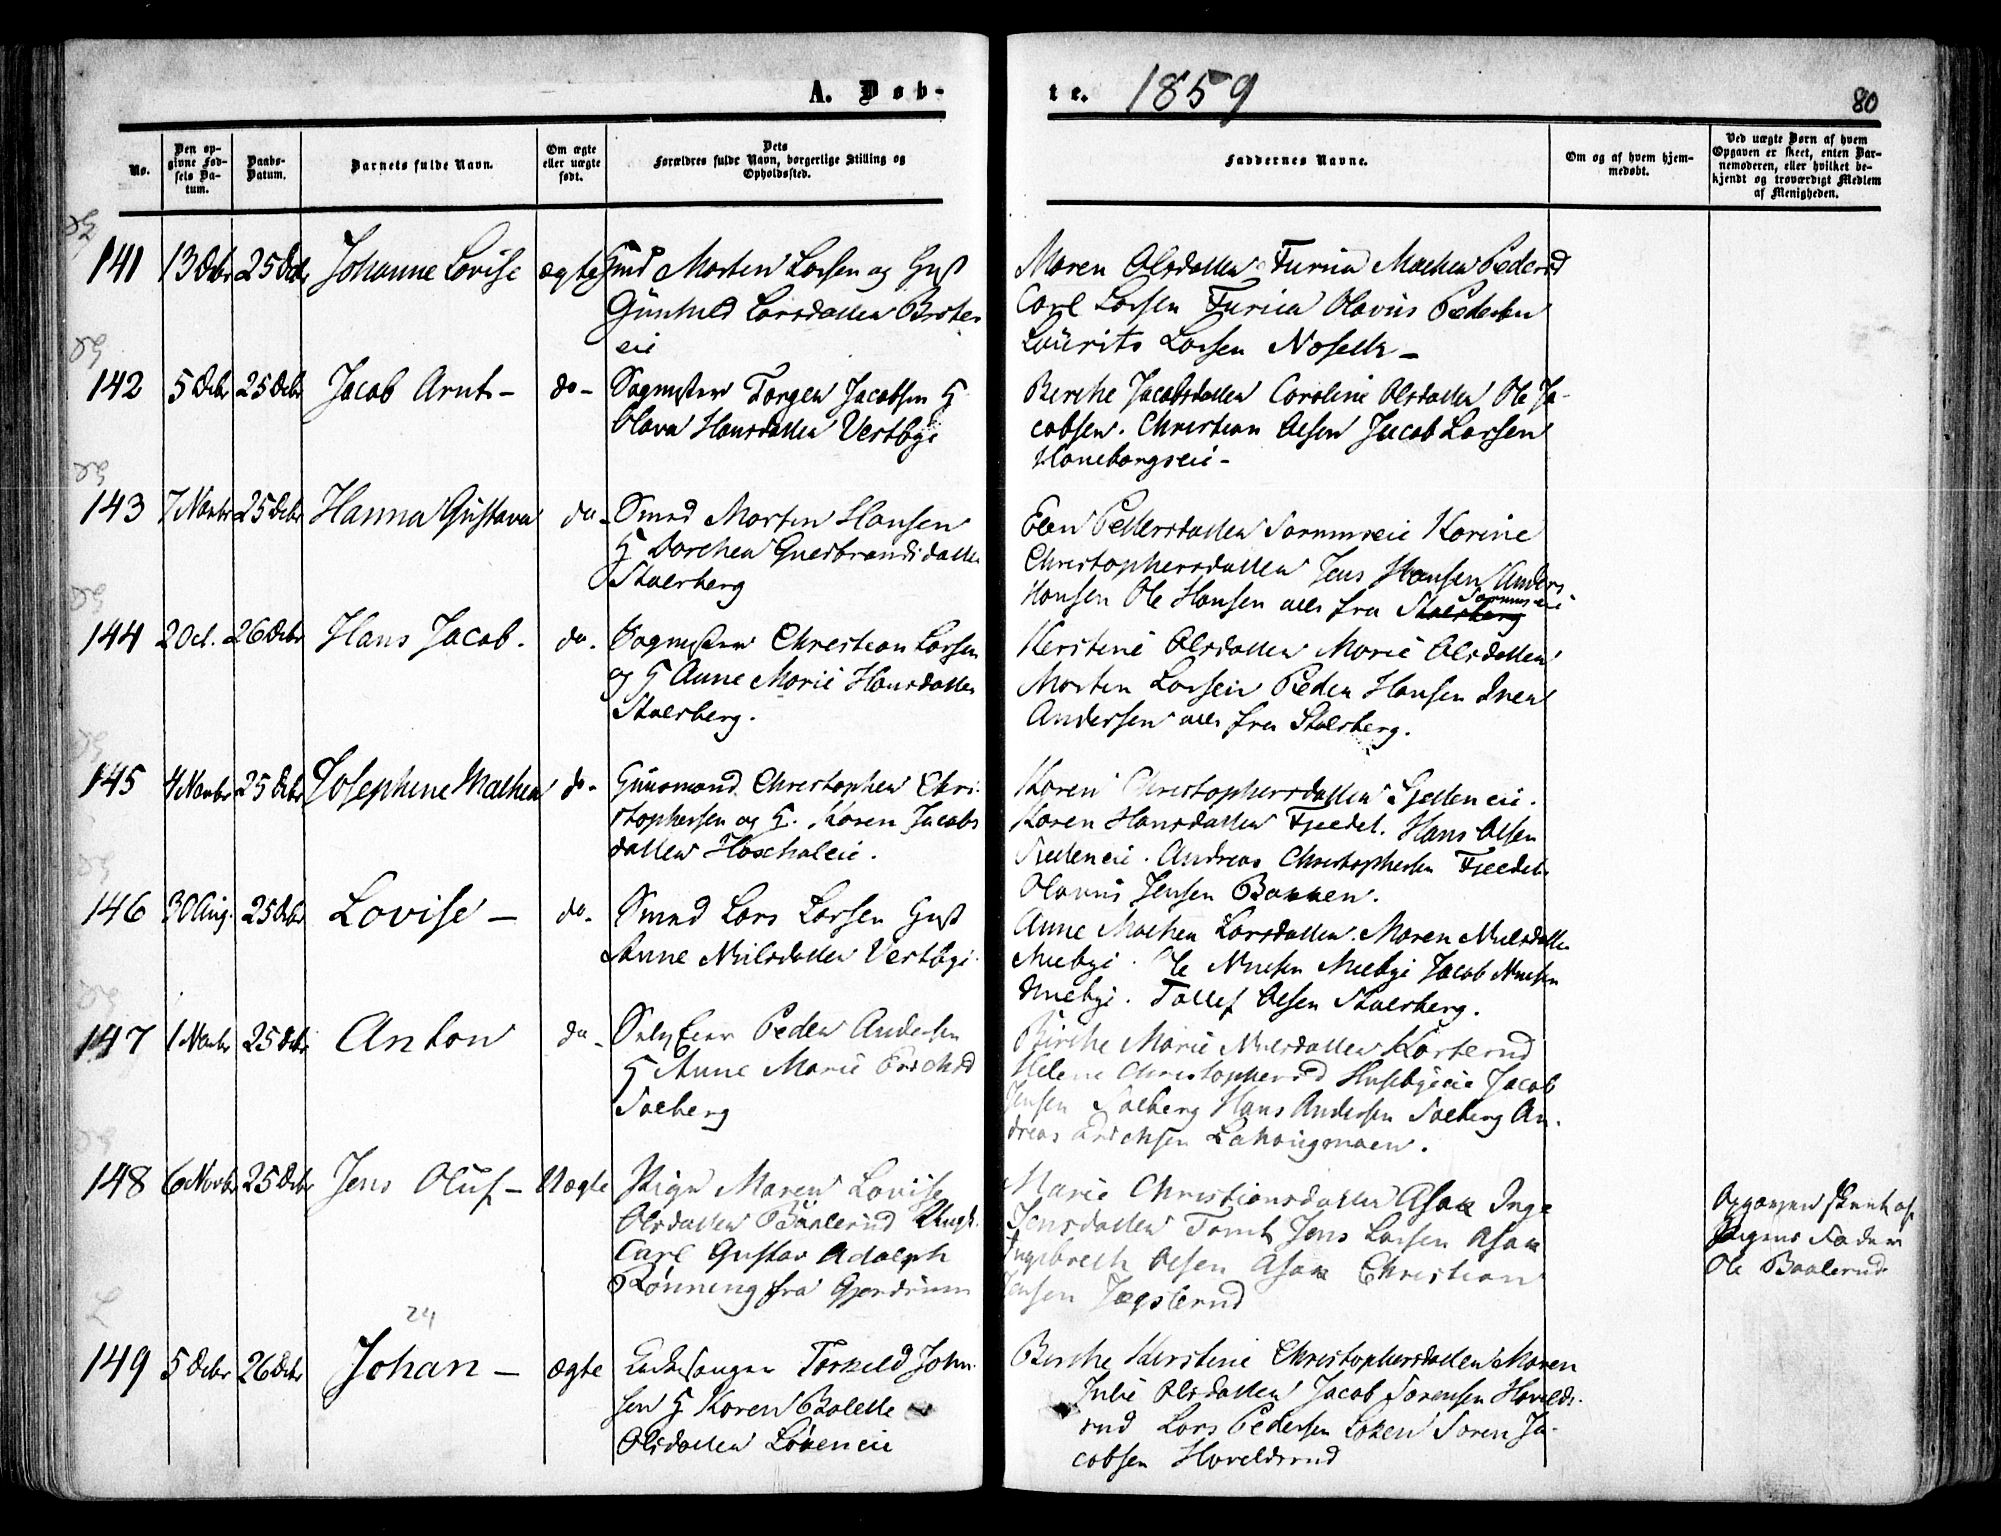 A. Døb-
te. 1859
80
No.
Den opgivne Fødsels Datum.
Daabs-Datum.
Barnets fulde Navn.
Om ægte eller uægte født.
Dets Forældres fulde Navn, borgerlige Stilling og Opholdssted.
Faddernes Navne.
Om og af hvem hjemmedøbt.
Ved uægte Børn af hvem Opgaven er skeet, enten Barnemoderen, eller hvilket bekjendt og troværdigt Medlem af Menigheden.
141 13 Octbr 25 Decbr Johanne Lovise ægte Smd Morten Larsen og Hust
Gunhild Larsdatter Braten
eie
Maren Olsdatter Furua Mathea Pedersd
Carl Larsen Furua Olavus Pedersen
Laurits Larsen Noseth -
142 5 Octbr 25 Decbr Jacob Arnt - do - Sagmester Torger Jacobsen H
Olava Hansdatter Vestbye
Berthe Jacobsdatter Caroline Olsdatter Ole Ja-
cobsen. Christian Olsen Jacob Larsen
Haneborgseie -
143 7 Novbr 25 Decbr Hanna Gustava do - Smed Morten Hansen
H Dorthea Guldbrandsdatter
Stalsberg
Elen Pettersdatter Karine
Christophersdatter Jens Hansen Anders
Hansen Ole Hansen alle fra Stalsberg
144 2 Oct. 26 Decbr Hans Jacob. do. Sagmester Christian Larsen
og H Anne Marie Hansdatter
Stalsberg.
Kerstine Olsdatter Marie Olsdatter
Morten Larsen Peder Hansen Iver
Andersen alle fra Stalsberg.
145 4 Novbr 25 Decbr Josephine Mathea do - Christopher Chri-
stophersen og H. Karen Jacobs
datter
Karen Christophersdatter
Karen Hansdatter Fjeldet. Hans Olsen
Andreas Christophersen Fjeldet
Olavus Jensen Bakken.
146 30 Aug. 25 Decbr Lovise - do - Smed Lars Larsen Hust
Anne Nilsdatter Vestbye
Anne Mathea Larsdatter. Maren Nilsdatter
Nilsen Jacob Nilsen
Tollef Olsen Stalsberg.
147 1 Novbr 25 Decbr Anton do - Selveier Peder Andersen
H Anne Marie Erichsd
Solberg
Birthe Marie Nilsdatter Korterud
Helene Christophersd Husebyeie Jacob
Jensen Solberg Hans Andersen Solberg An-
dreas Erichsen
148 6 Novbr 25 Decbr Jens Oluf - Uægte Pige Maren Lovise
Olsdatter Baalerud Ungk.
Carl Gustav Adolph
Rønning fra Gjerdrum
Marie Christiansdatter Asak Inge
Jensdatter Tomt Jens Larsen Asak
Ingebreth Olsen Asak Christian
Jensen Jægslerud
Opgaven skeet af
Pigens Fader
Ole Baalerud
24
149 5 Octbr 26 Decbr Johan - ægte Kirkesanger Torkeld John-
sen H Karen Bolette
Olsdatter Løkeneie
Berthe Kirstine Christophersdatter Maren
Julie Olsdatter Jacob Sørensen Hovelds-
rud Lars Pedersen Løken Søren Ja-
cobsen Hoveldsrud